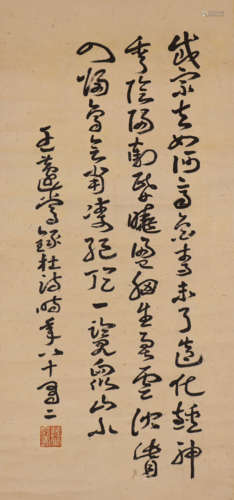 岱宗夫如何齊魯青未了造化鍾神
秀陰陽割昏曉盪胸生曾雲決眥
入歸鳥會當凌絕頂一覽眾山小
王蘧常錄杜詩時年八十有二